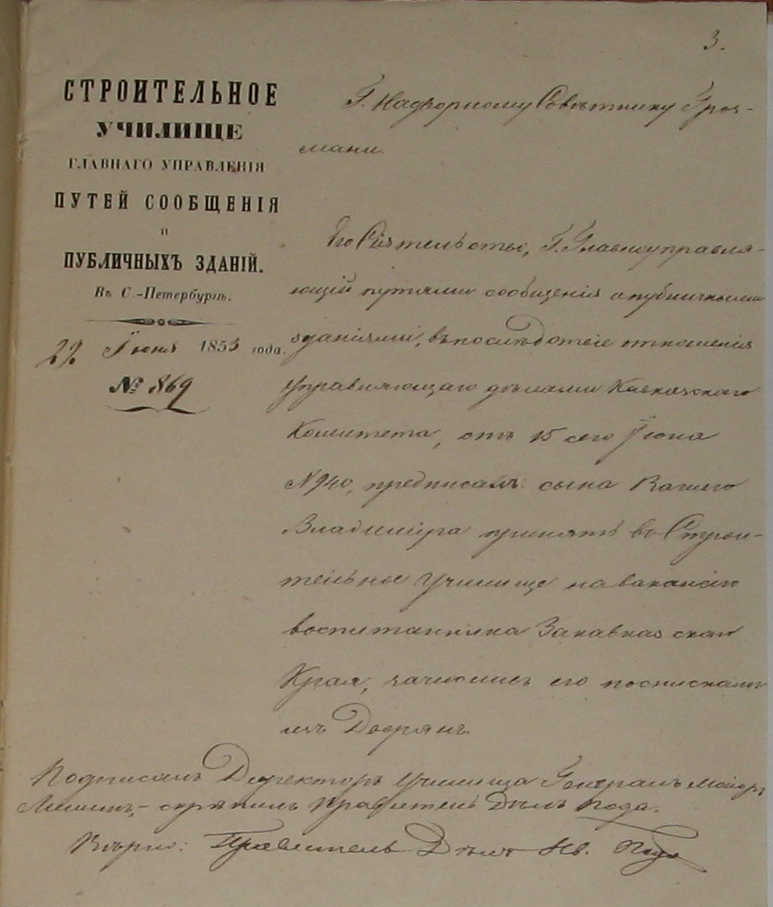 3.
СТРОИТЕЛЬНОЕ
УЧИЛИЩЕ
ГЛАВНАГО УПРАВЛЕНІЯ
ПУТЕЙ СООБЩЕНІЯ
и
ПУБЛИЧНЫХЪ ЗДАНІЙ.
Въ С.-Петербургѣ.
22 Іюня 1853 года.
№ 869
Г. Надворному Совѣтнику Гроз-
мани
Его Сіятельство, Г. Главноуправля-
ющій путями сообщенія и публичными
зданіями, въ послѣдствіе отношенія
Управляющаго дѣлами Кавказскаго
Комитета, отъ 15 сего Іюня
№ 940, предписалъ: сына Вашего
Владиміра принять въ Строи-
тельное Училище на вакансію
воспитанника Закавказскаго
Края, зачислить его по спискамъ
изъ Дворянъ.
Подписалъ Директоръ Училища Генералъ Маіоръ
скрѣпилъ Правитель Дѣлъ
Вѣрно: Правитель Дѣлъ